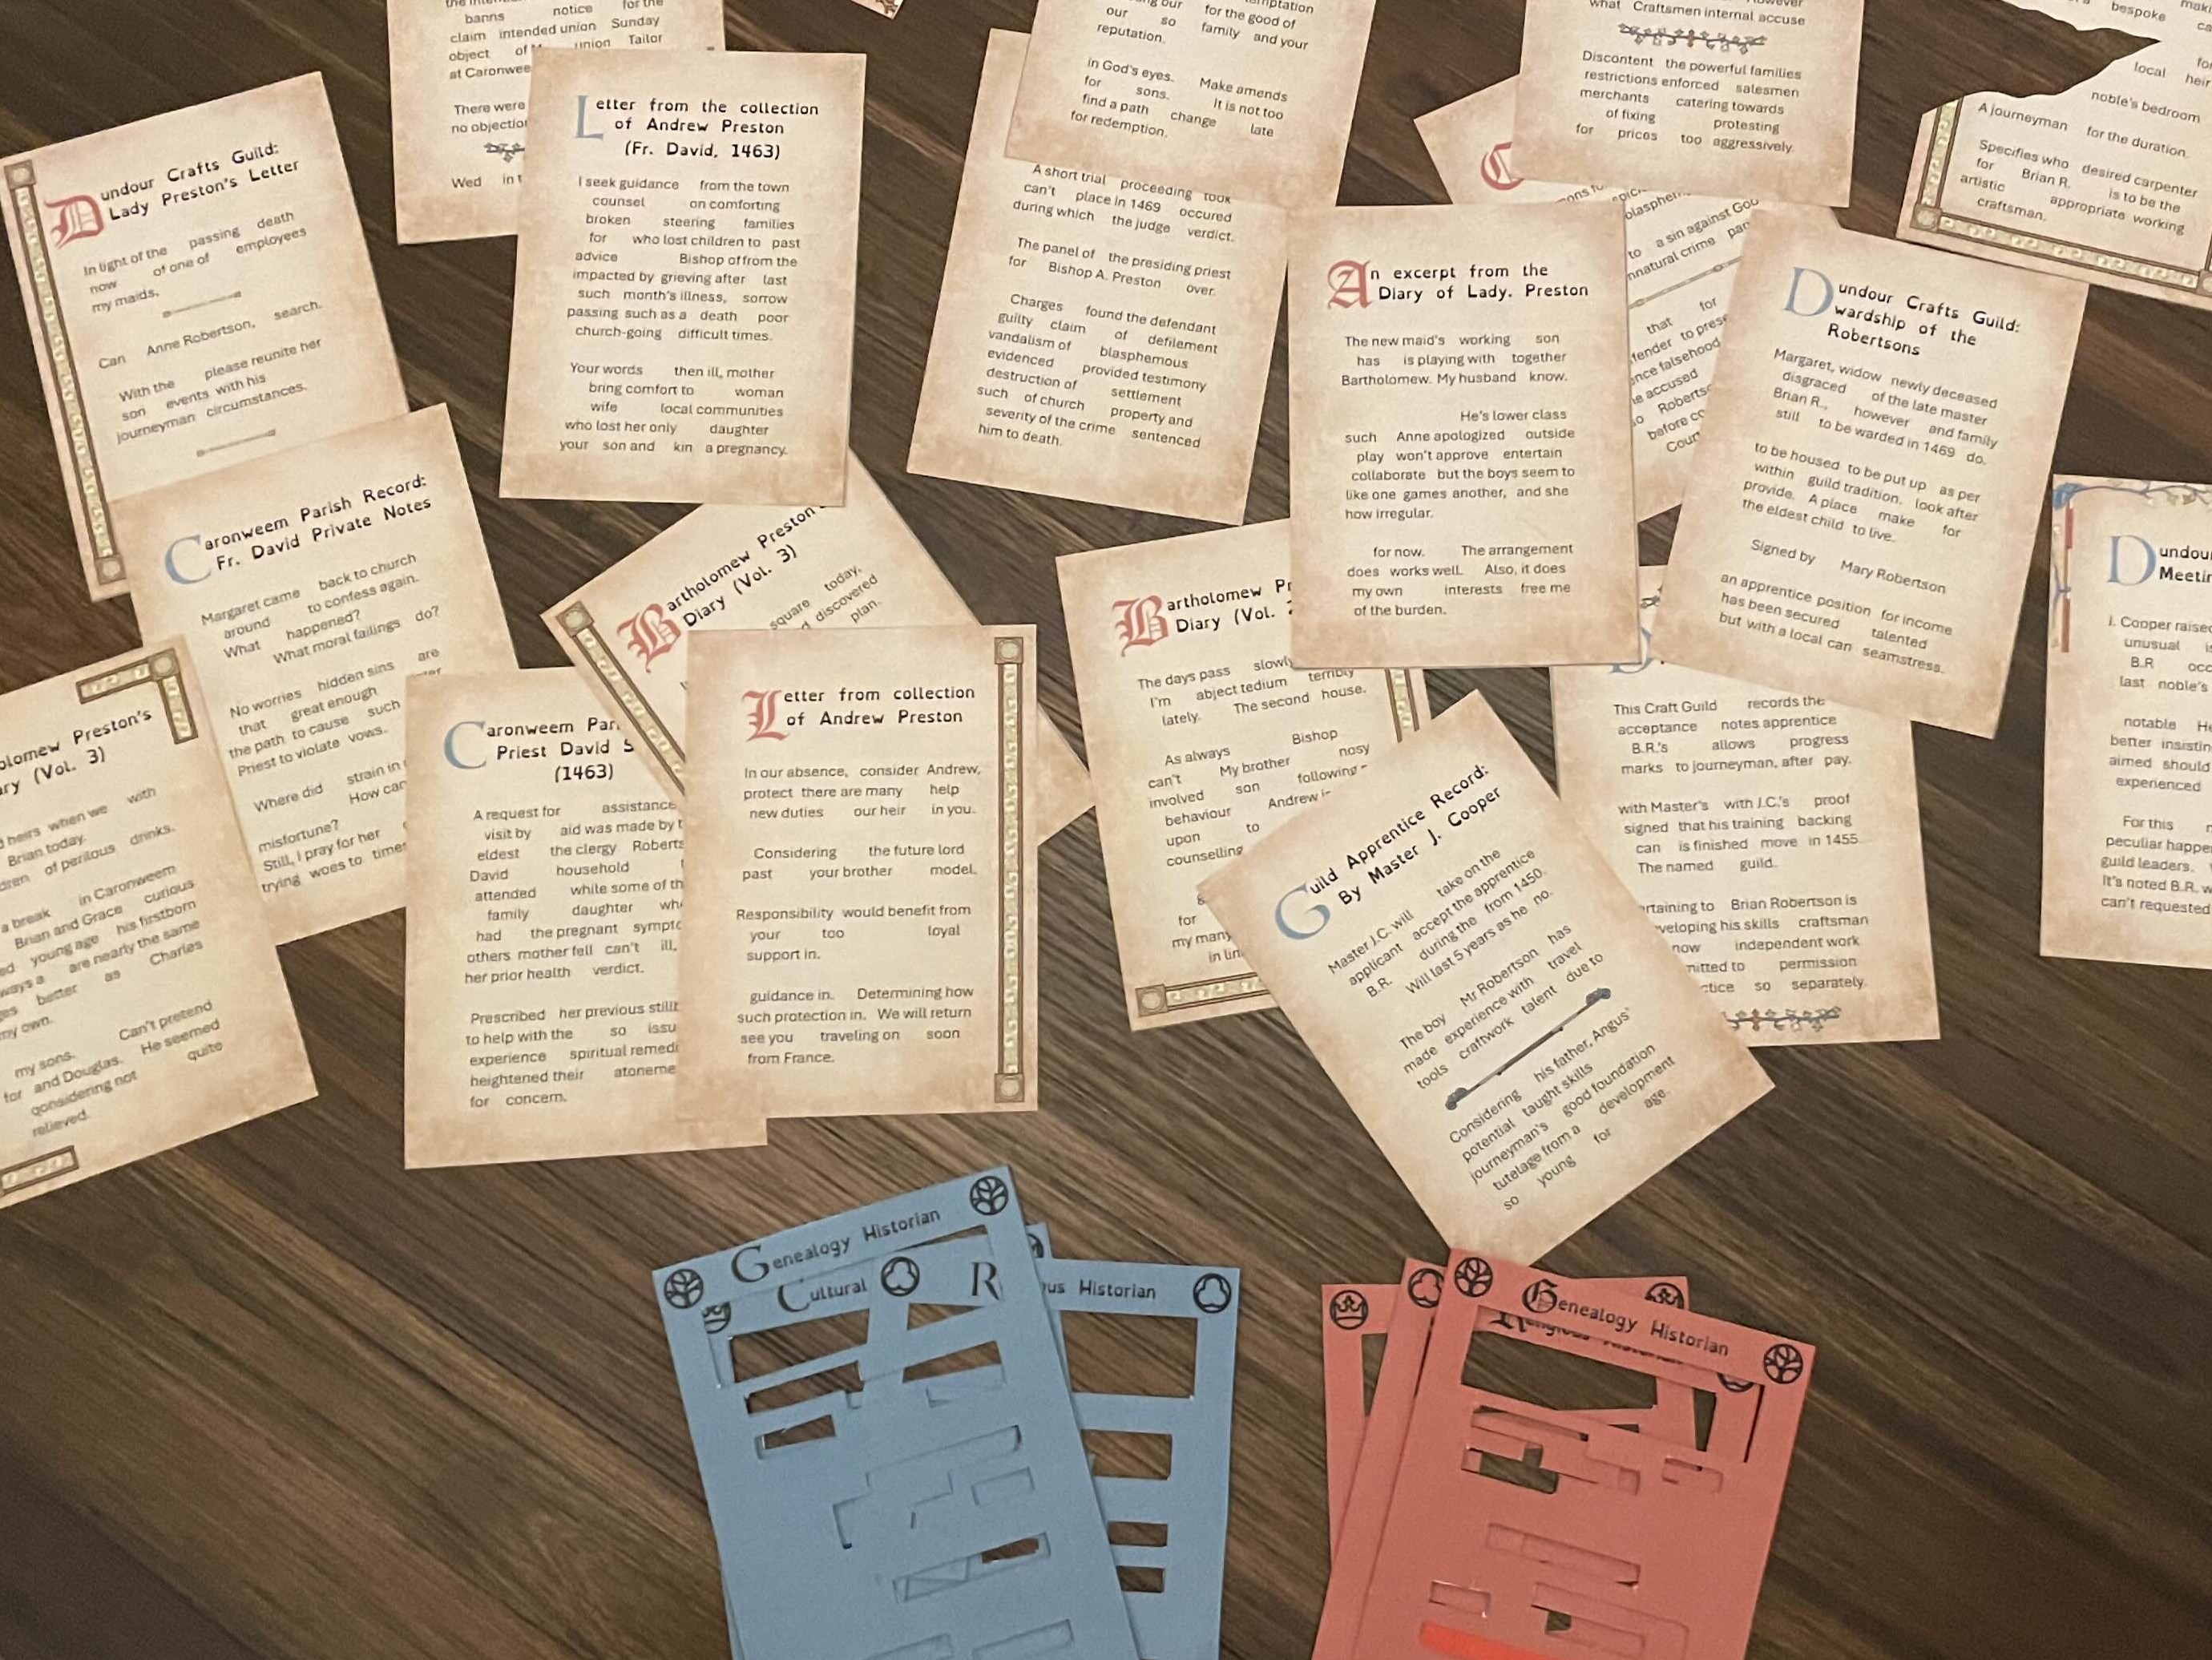 banns notice for the
claim intended union Sunday
object of union Tailor
at Caronwee
There were
no objectio
Wed in t
Dundour Crafts Guild:
Lady Preston's Letter
In light of the passing death
now of one of employees
my maids,
Can Anne Robertson, search.
With the please reunite her
son events with his
journeyman circumstances.
Letter from the collection
of Andrew Preston
(Fr. David, 1463)
I seek guidance from the town
counsel on comforting
broken steering families
for who lost children to past
advice Bishop of from the
impacted by grieving after last
such month's illness, sorrow
passing such as a death poor
church-going difficult times.
Your words then ill, mother
bring comfort to woman
wife local communities
who lost her only daughter
your son and kin a pregnancy.
our so for the good of
reputation. family and your
in God's eyes. Make amends
for sons. it is not too
find a path change late
for redemption.
A short trial proceeding took
can't place in 1469 occured
during which the judge verdict.
The panel of the presiding priest
for Bishop A. Preston over.
Charges found the defendant
guilty claim of defilement
vandalism of blasphemous
evidenced provided testimony
destruction of settlement
such of church property and
severity of the crime sentenced
him to death.
what Craftsmen internal accuse
Discontent the powerful families
restrictions enforced salesmen
merchants catering towards
of fixing protesting
for prices too aggressively.
to a sin against God
that for
before co
bespoke
local heir
noble's bedroom
A journeyman for the duration.
Specifies who desired carpenter
for Brian R. is to be the
artistic appropriate working
craftsman.
An excerpt from the
Diary of Lady. Preston
The new maid's working son
has is playing with together
Bartholomew. My husband know.
He's lower class
such Anne apologized outside
play won't approve entertain
collaborate but the boys seem to
like one games another, and she
how irregular.
for now. The arrangement
does works well. Also, it does
my own interests free me
of the burden.
Dundour Crafts Guild:
wardship of the
Robertsons
Margaret, widow newly deceased
disgraced of the late master
Brian R., however and family
still to be warded in 1469 do.
to be housed to be put up as per
within guild tradition. look after
provide. A place make for
the eldest child to live.
Signed by Mary Robertson
an apprentice position for income
has been secured talented
but with a local can seamstress.
Caronweem Parish Record:
Fr. David Private Notes
Margaret came back to church
around to confess again.
What happened?
What moral failings do?
No worries hidden sins are
that great enough
the path to cause such
Priest to violate vows.
Where did strain in
How can
misfortune?
Still, I pray for her
trying woes to time
olomew Preston's
ry (Vol. 3)
heirs when we with
Brian today.
dren of perilous drinks.
a break in Caronweem
Brian and Grace curious
ed young age his firstborn
ways a are nearly the same
ges better as Charles
my own.
my sons. Can't pretend
for and Douglas. He seemed
qonsidering not quite
relieved.
Caronweem Par
Priest David S
(1463)
A request for assistance
visit by aid was made by t
eldest the clergy Roberts
David household
attended while some of th
family daughter wh
had the pregnant sympto
others mother fell can't ill,
her prior health verdict.
Prescribed her previous still
to help with the so issu
experience spiritual remed
heightened their atoneme
for concern.
Bartholomew Preston
Diary (Vol. 3)
square today,
d discovered
plan.
Letter from collection
of Andrew Preston
In our absence, consider Andrew,
protect there are many help
new duties our heir in you.
Considering the future lord
past your brother model.
Responsibility would benefit from
your too loyal
support in.
guidance in. Determining how
such protection in. We will return
see you traveling on soon
from France.
Bartholomew Pr
Diary (Vol.
The days pass slowly
I'm abject tedium terribly
lately. The second house.
As always Bishop
can't My brother nosy
involved son following
behaviour Andrew i
upon to
counselling
for
my many
in lin
Guild Apprentice Record:
By Master J. Cooper
Master J.C. will take on the
applicant accept the apprentice
B.R. during the from 1450.
Will last 5 years as he no.
The boy Mr Robertson has
made experience with travel
tools craftwork talent due to
Considering his father, Angus'
potential taught skills
journeyman's good foundation
tutelage from a development
so young for age.
This Craft Guild records the
acceptance notes apprentice
B.R.'s allows progress
marks to journeyman, after pay.
with Master's with J.C.'s proof
signed that his training backing
can is finished move in 1455
The named guild.
rtaining to Brian Robertson is
veloping his skills craftsman
now independent work
mitted to permission
ctice so separately.
Dundou
Meetin
I. Cooper raised
unusual is
B.R occ
last noble's
notable He
better insisting
aimed should
experienced
For this
peculiar happe
guild leaders.
It's noted B.R. w
can't requested
Genealogy Historian
Cultural R
us Historian
Genealogy Historian
Religious Historian